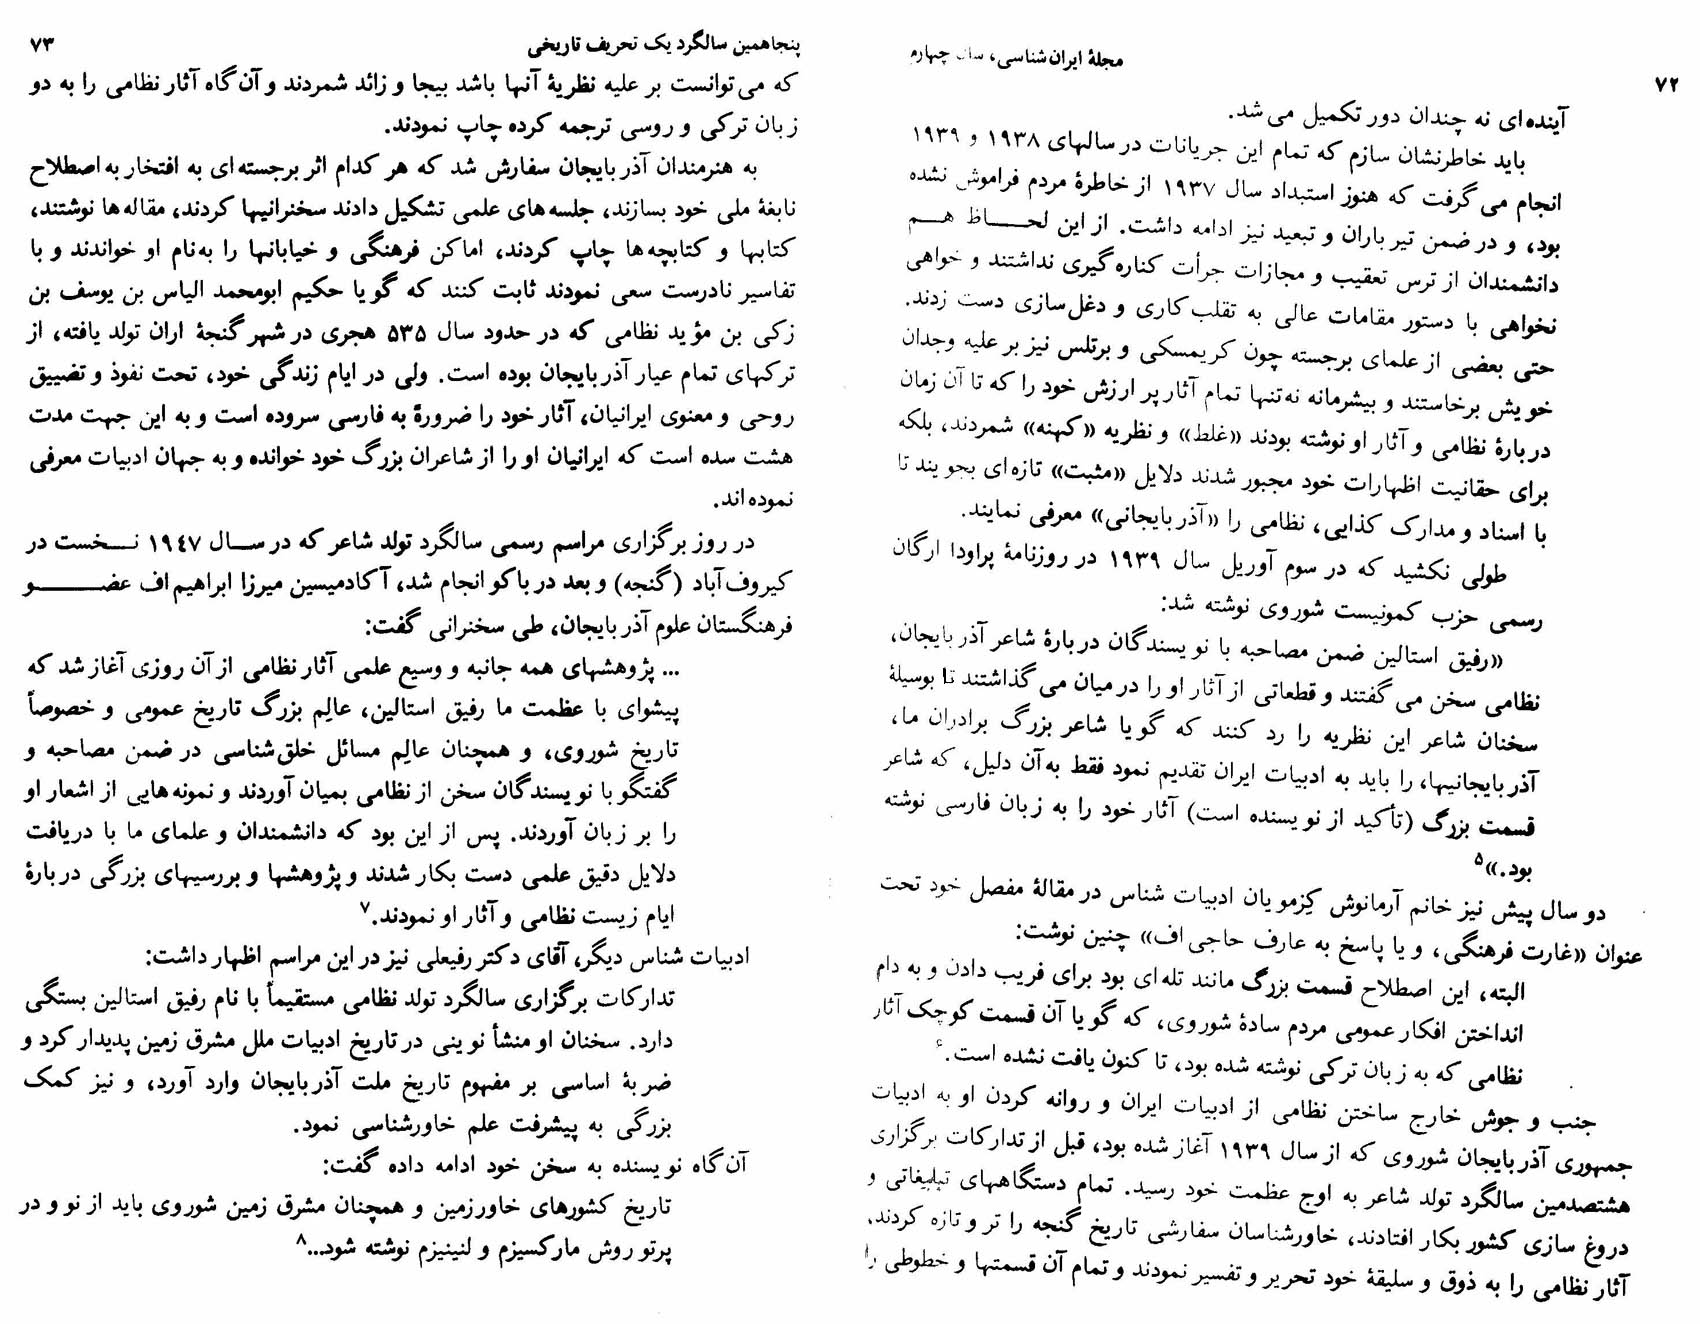 مجلهٔ ایران شناسی، سال چهارم
۷۲
آینده‌ای نه چندان دور تکمیل می‌شد.
باید خاطرنشان سازم که تمام این جریانات در سالهای ۱۹۳۸ و ۱۹۳۹
انجام می‌گرفت که هنوز استبداد سال ۱۹۳۷ از خاطرهٔ مردم فراموش نشده
بود، و در ضمن تیر باران و تبعید نیز ادامه داشت. از این لحاظ هم
دانشمندان از ترس تعقیب و مجازات جرأت کناره گیری نداشتند و خواهی
نخواهی با دستور مقامات عالی به تقلب کاری و دغل سازی دست زدند.
حتی بعضی از علمای برجسته چون کریمسکی و برتلس نیز بر علیه وجدان
خویش برخاستند و بیشرمانه نه تنها تمام آثار پر ارزش خود را که تا آن زمان
دربارهٔ نظامی و آثار او نوشته بودند «غلط» و نظریه «کهنه» شمردند، بلکه
برای حقانیت اظهارات خود مجبور شدند دلایل «مثبت» تازه‌ای بجویند تا
با اسناد و مدارک کذایی، نظامی را «آذر بایجانی» معرفی نمایند.
طولی نکشید که در سوم آوریل سال ۱۹۳۹ در روزنامهٔ پراودا ارگان
رسمی حزب کمونیست شوروی نوشته شد:
«رفیق استالین ضمن مصاحبه با نویسندگان دربارهٔ شاعر آذر بایجان،
نظامی سخن می‌گفتند و قطعاتی از آثار او را در میان می‌گذاشتند تا بوسیلهٔ
سخنان شاعر این نظریه را رد کنند که گویا شاعر بزرگ برادران ما،
آذر بایجانیها، را باید به ادبیات ایران تقدیم نمود فقط به آن دلیل، که شاعر
قسمت بزرگ (تأکید از نویسنده است) آثار خود را به زبان فارسی نوشته
بود.»۵
دو سال پیش نیز خانم آرمانوش کِزمویان ادبیات شناس در مقالهٔ مفصل خود تحت
عنوان «غارت فرهنگی، و یا پاسخ به عارف حاجی اف» چنین نوشت:
البته، این اصطلاح قسمت بزرگ مانند تله‌ای بود برای فریب دادن و به دام
انداختن افکار عمومی مردم سادهٔ شوروی، که گویا آن قسمت کوچک آثار
نظامی که به زبان ترکی نوشته شده بود، تا کنون یافت نشده است.۶
جنب و جوش خارج ساختن نظامی از ادبیات ایران و روانه کردن او به ادبیات
جمهوری آذر بایجان شوروی که از سال ۱۹۳۹ آغاز شده بود، قبل از تدارکات برگزاری
هشتصدمین سالگرد تولد شاعر به اوج عظمت خود رسید. تمام دستگاههای تبلیغاتی و
دروغ سازی کشور بکار افتادند، خاورشناسان سفارشی تاریخ گنجه را تر و تازه کردند،
آثار نظامی را به ذوق و سلیقهٔ خود تحریر و تفسیر نمودند و تمام آن قسمتها و خطوطی را
پنجاهمین سالگرد یک تحریف تاریخی
۷۳
که می‌توانست بر علیه نظریهٔ آنها باشد بیجا و زائد شمردند و آن گاه آثار نظامی را به دو
زبان ترکی و روسی ترجمه کرده چاپ نمودند.
به هنرمندان آذر بایجان سفارش شد که هر کدام اثر برجسته‌ای به افتخار به اصطلاح
نابغهٔ ملی خود بسازند، جلسه‌های علمی تشکیل دادند سخنرانیها کردند، مقاله‌ها نوشتند،
کتابها و کتابچه‌ها چاپ کردند، اماکن فرهنگی و خیابانها را به نام او خواندند و با
تفاسیر نادرست سعی نمودند ثابت کنند که گویا حکیم ابومحمد الیاس بن یوسف بن
زکی بن مؤید نظامی که در حدود سال ۵۳۵ هجری در شهر گنجهٔ اران تولد یافته، از
ترکهای تمام عیار آذر بایجان بوده است. ولی در ایام زندگی خود، تحت نفوذ و تضییق
روحی و معنوی ایرانیان، آثار خود را ضرورةً به فارسی سروده است و به این جهت مدت
هشت سده است که ایرانیان او را از شاعران بزرگ خود خوانده و به جهان ادبیات معرفی
نموده‌اند.
در روز برگزاری مراسم رسمی سالگرد تولد شاعر که در سال ۱۹۴۷ نخست در
کیروف آباد (گنجه) و بعد در باکو انجام شد، آکادمیسین میرزا ابراهیم اف عضو
فرهنگستان علوم آذر بایجان، طی سخنرانی گفت:
... پژوهشهای همه جانبه و وسیع علمی آثار نظامی از آن روزی آغاز شد که
پیشوای با عظمت ما رفیق استالین، عالِم بزرگ تاریخ عمومی و خصوصاً
تاریخ شوروی، و همچنان عالِم مسائل خلق شناسی در ضمن مصاحبه و
گفتگو با نویسندگان سخن از نظامی بمیان آوردند و نمونه‌هایی از اشعار او
را بر زبان آوردند. پس از این بود که دانشمندان و علمای ما با دریافت
دلایل دقیق علمی دست بکار شدند و پژوهشها و بررسیهای بزرگی دربارهٔ
ایام زیست نظامی و آثار او نمودند.۷
ادبیات شناس دیگر، آقای دکتر رفیعلی نیز در این مراسم اظهار داشت:
تدارکات برگزاری سالگرد تولد نظامی مستقیماً با نام رفیق استالین بستگی
دارد. سخنان او منشأ نوینی در تاریخ ادبیات ملل مشرق زمین پدیدار کرد و
ضربهٔ اساسی بر مفهوم تاریخ ملت آذر بایجان وارد آورد، و نیز کمک
بزرگی به پیشرفت علم خاورشناسی نمود.
آن گاه نویسنده به سخن خود ادامه داده گفت:
تاریخ کشورهای خاورزمین و همچنان مشرق زمین شوروی باید از نو و در
پرتو روش مارکسیزم و لنینیزم نوشته شود...۸